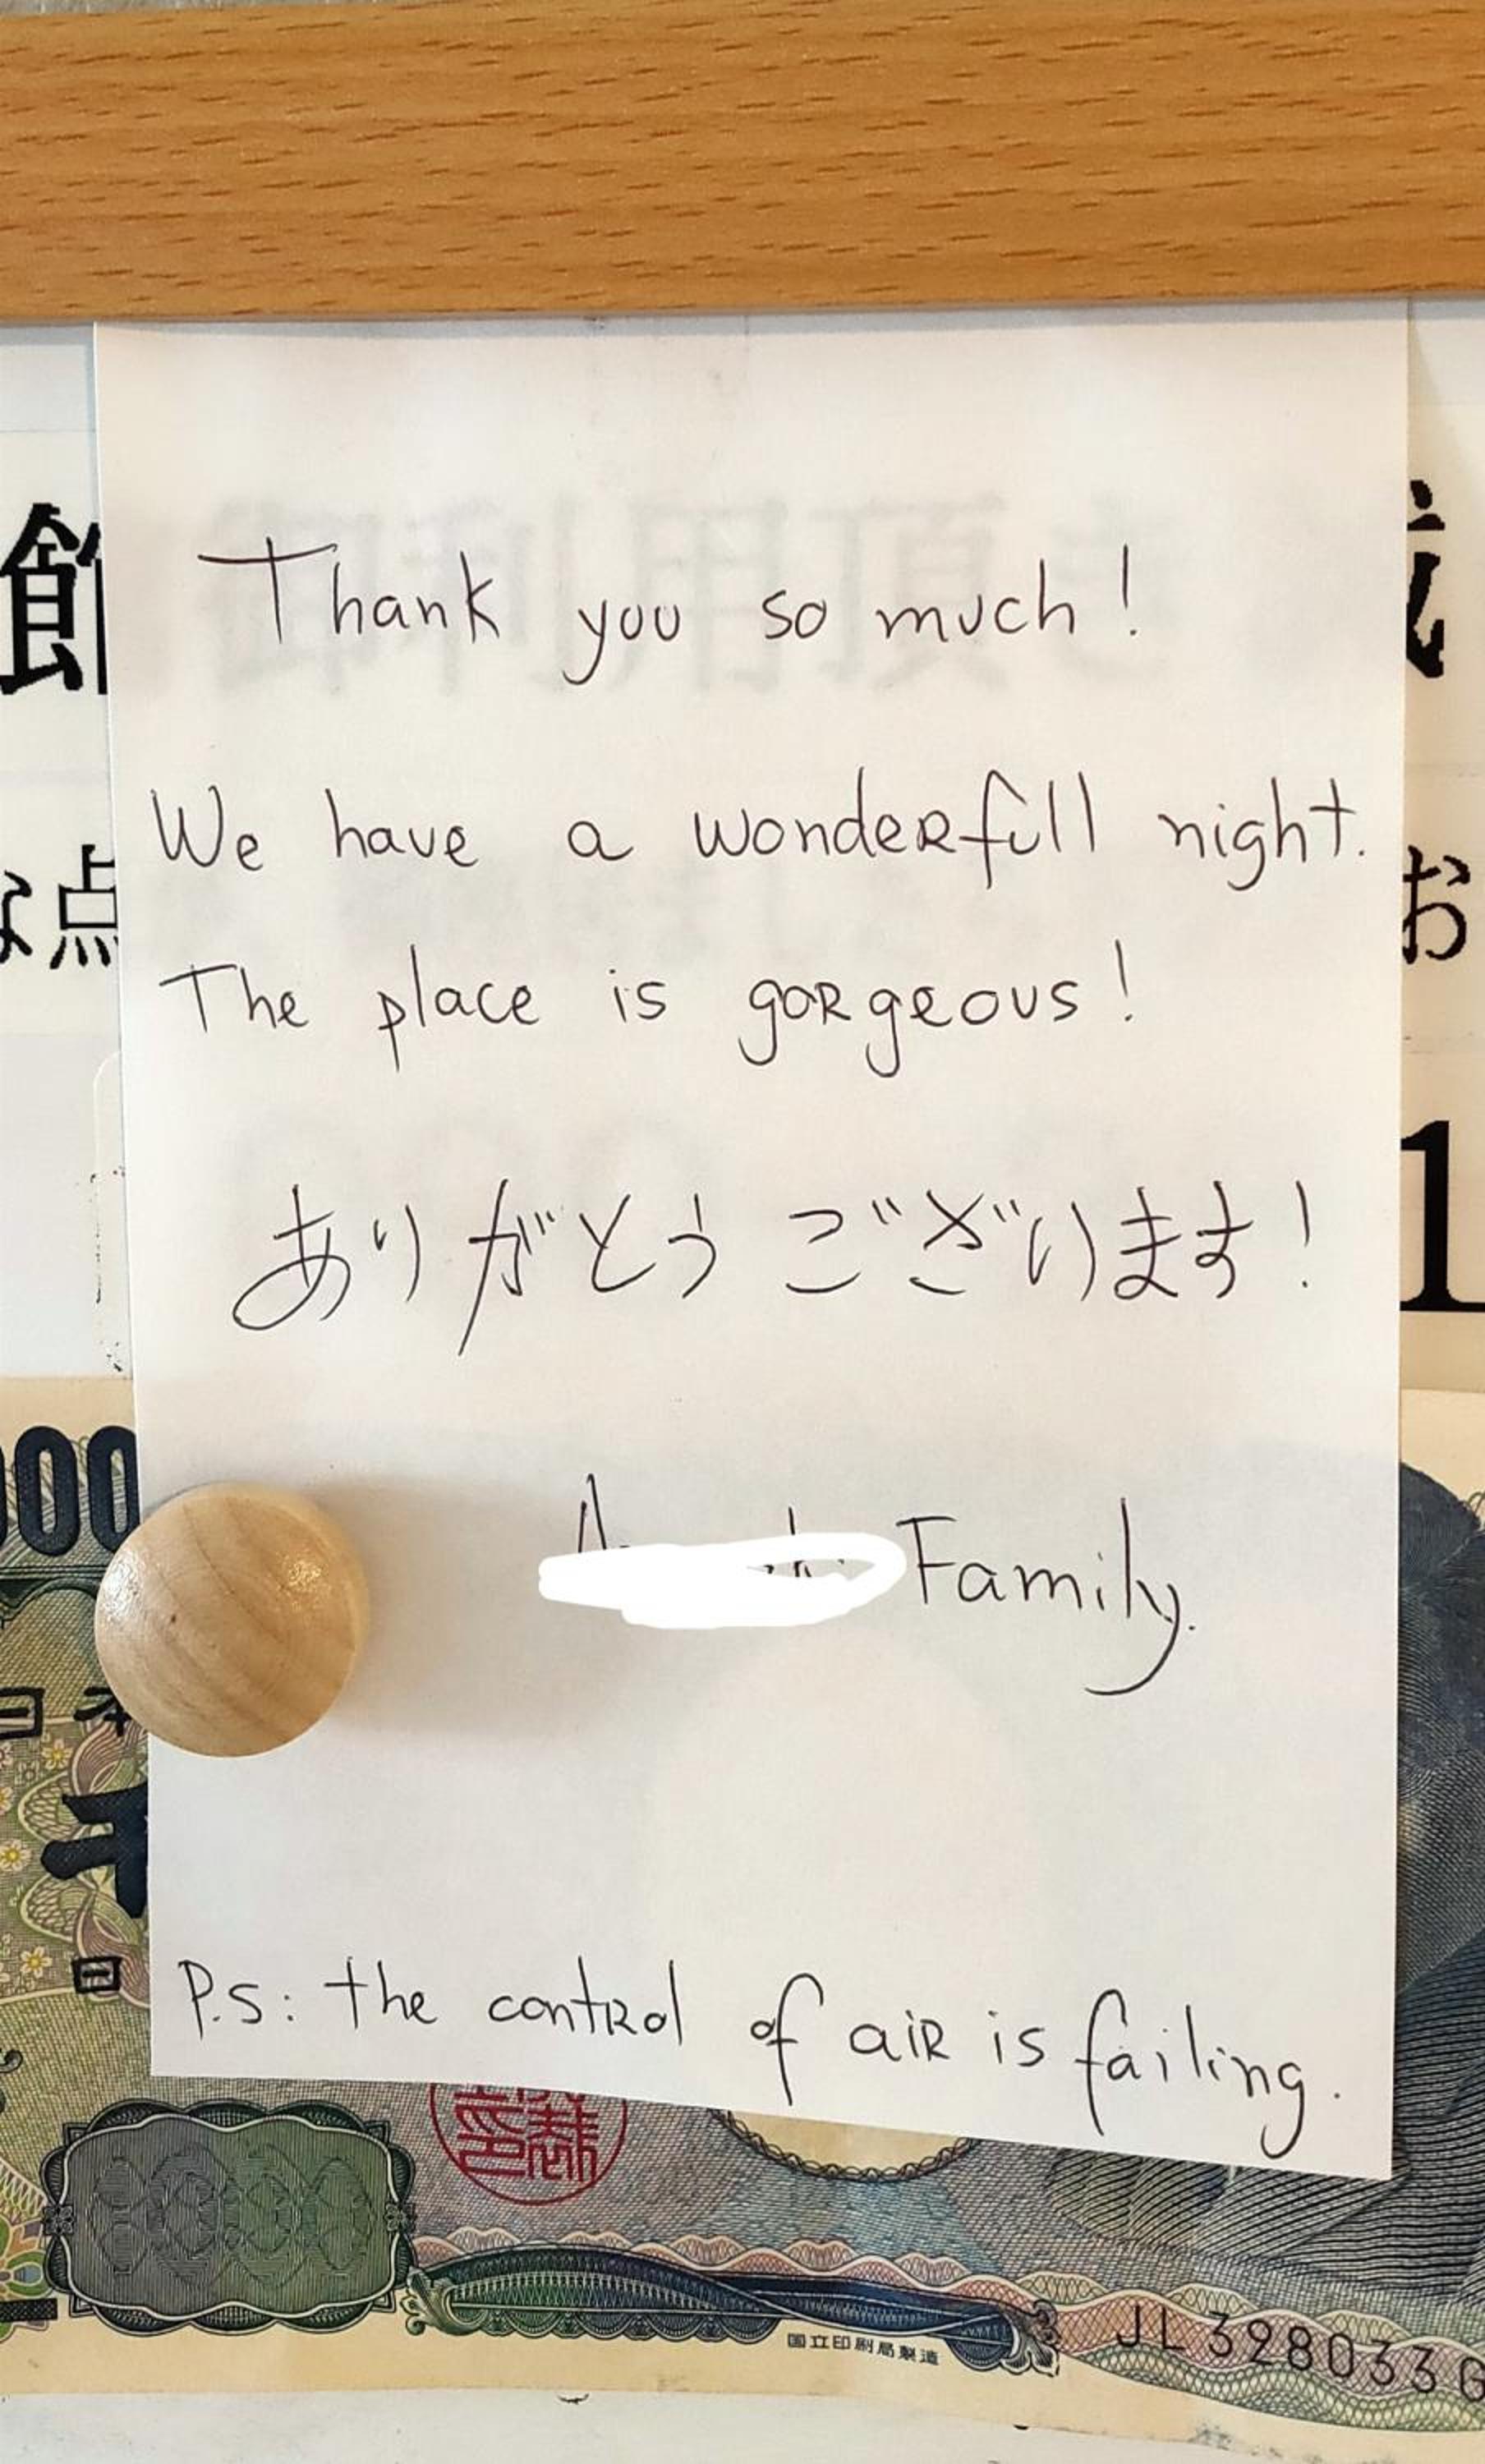 Thank you so much!
館
We have a wonderfull night.
な点
お
The place is gorgeous!
ありがとうございます!
1
000
Family.
日本
千
P.S: the control of air is failing.
国立印刷局製造
JL328033G